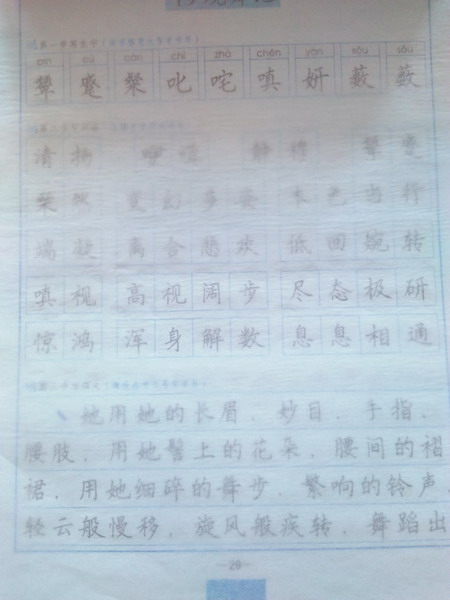 观舞记
第一步写生字
pín cù càn chì zhà chēn yán sǒu sǒu
颦 蹙 粲 叱 咤 嗔 妍 薮 薮
清扬 静穆 颦蹙
粲然 变幻多姿 本色当行
端凝 离合悲欢 低回婉转
嗔视 高视阔步 尽态极妍
惊鸿 浑身解数 息息相通
她用她的长眉，妙目，手指，
腰肢，用她髻上的花朵，腰间的褶
裙，用她细碎的舞步，繁响的铃声，
轻云般慢移，旋风般疾转，舞蹈出